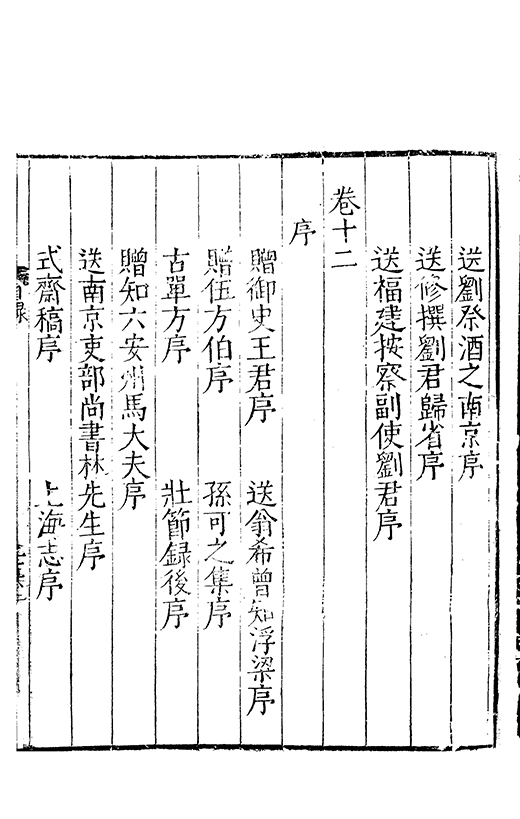 送劉祭酒之南京序
送修撰劉君歸省序
送福建按察副使劉君序
卷十二
序
贈御史王君序　送翁希曾知浮梁序
贈伍方伯序　孫可之集序
古單方序　壯節録後序
贈知六安州馬大夫序
送南京吏部尚書林先生序
式齋稿序　上海志序
目録